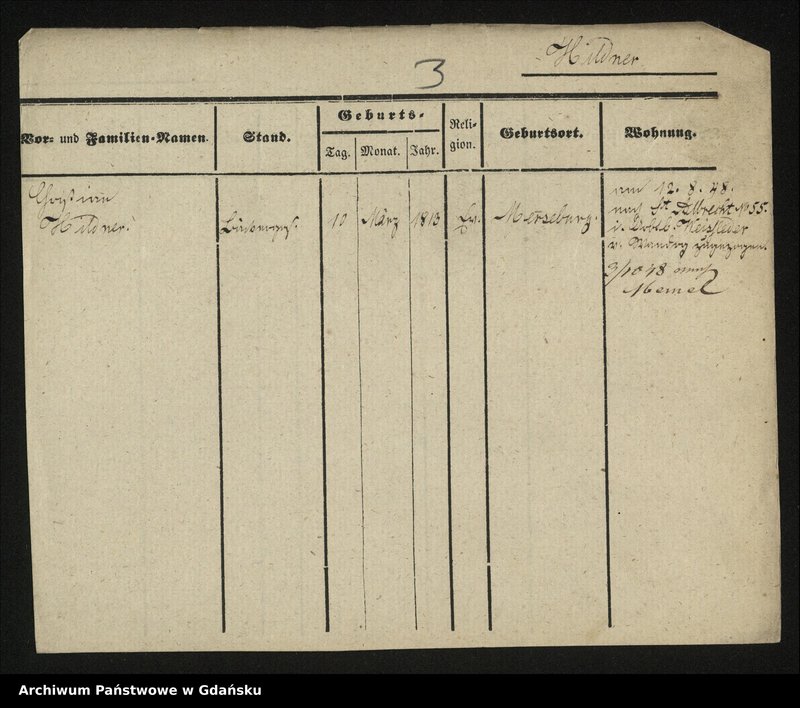 Hildner
3
Vor- und Familien-Namen.
Stand.
Geburts-
Tag.
Monat.
Jahr.
Reli-
gion.
Geburtsort.
Wohnung.
Christian
Hildner.
10
März
1813
Ev.
Merseburg.
am 12. 8. 48.
nach St. Albrecht No 55.
v. zugezogen.
3/10 48 nach
Memel
Archiwum Państwowe w Gdańsku